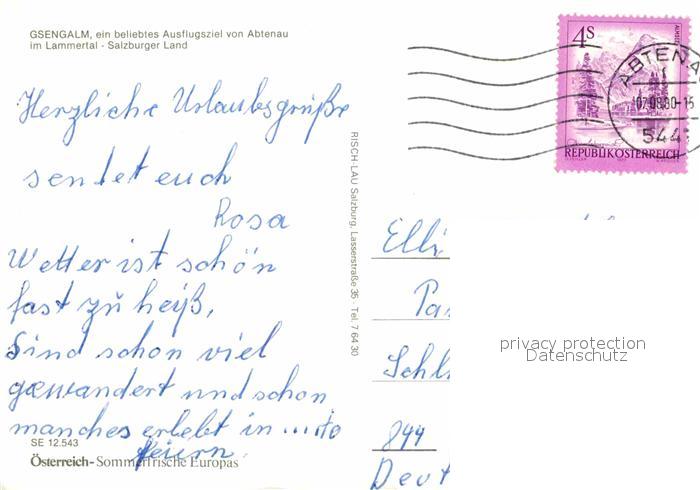 GSENGALM, ein beliebtes Ausflugsziel von Abtenau
im Lammertal - Salzburger Land
Herzliche Urlaubsgrüße
sendet euch
Rosa
Wetter ist schön
fast zu heiß,
Sind schon viel
gewandert und schon
manches erlebt in ....
feiern.
SE 12.543
Österreich - Sommerfrische Europas
RISCH-LAU Salzburg, Lasserstraße 35 · Tel. 7 64 30
4 S
REPUBLIK ÖSTERREICH
ABTENA
07.08.80-15
544
Elli
Schl
844
Deut
privacy protection
Datenschutz